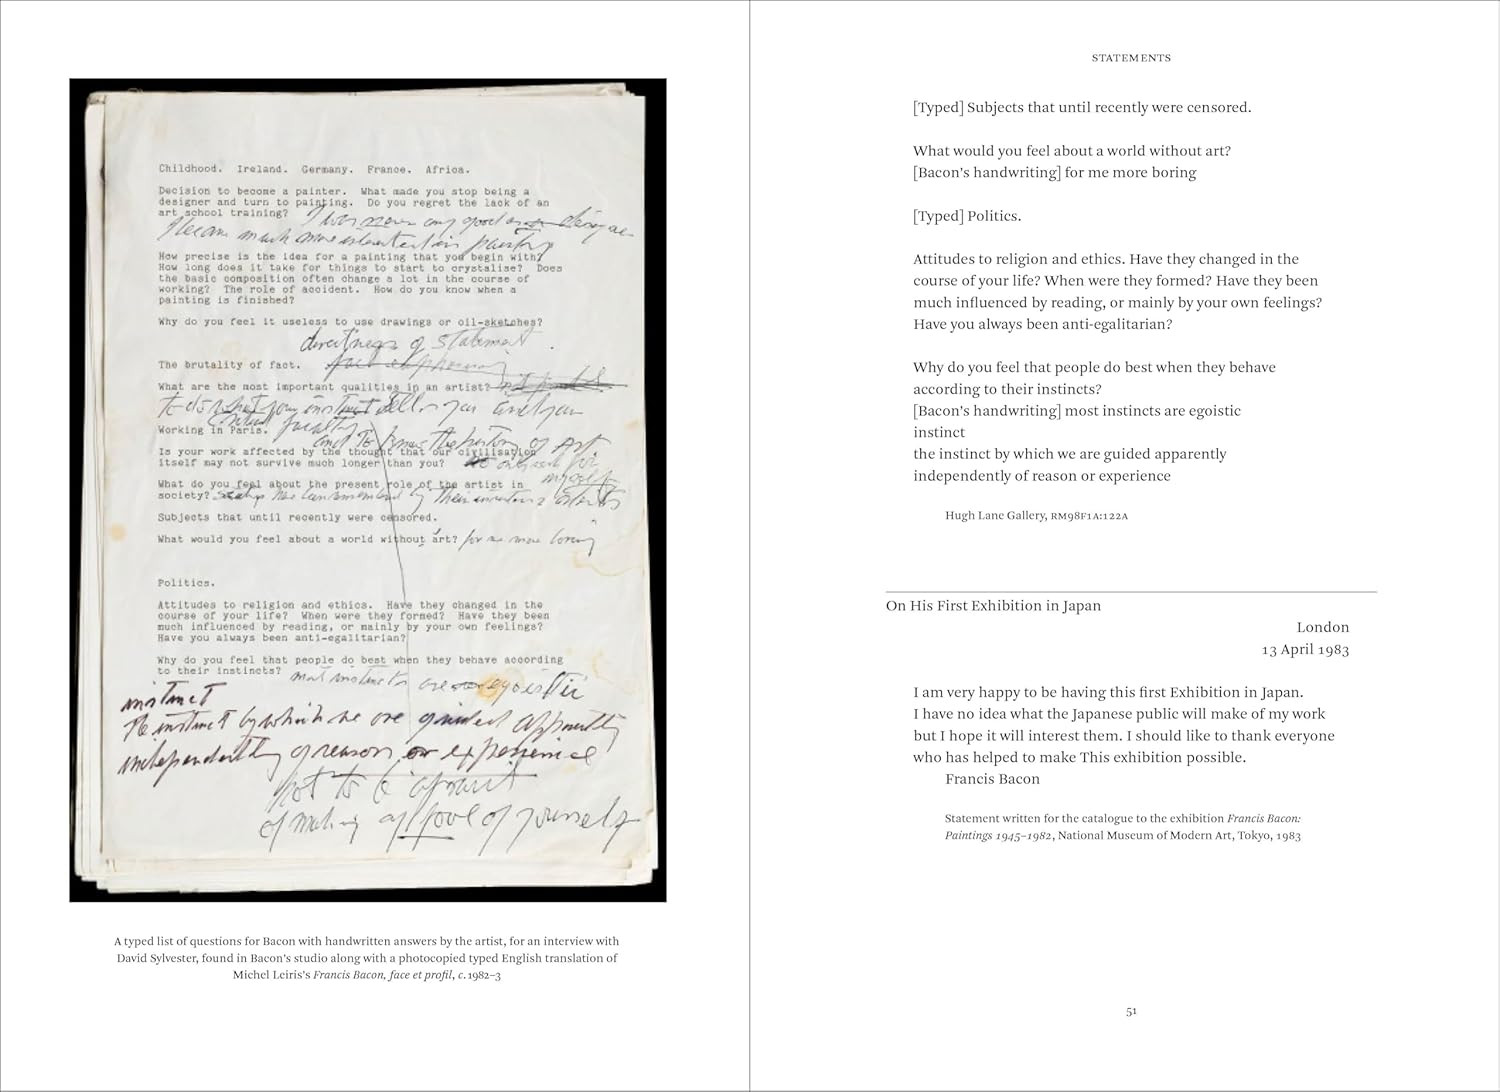 Childhood. Ireland. Germany. France. Africa.
Decision to become a painter. What made you stop being a
designer and turn to painting. Do you regret the lack of an
art school training? I was never any good as a designer
I became much more interested in painting
How precise is the idea for a painting that you begin with?
How long does it take for things to start to crystalise? Does
the basic composition often change a lot in the course of
working? The role of accident. How do you know when a
painting is finished?
Why do you feel it useless to use drawings or oil-sketches?
directness of statement.
The brutality of fact.
What are the most important qualities in an artist?
to do what your instinct tells you and your
critical faculty
Working in Paris.
and to know the history of Art
Is your work affected by the thought that our civilisation
itself may not survive much longer than you? no only work for
myself
What do you feel about the present role of the artist in
society? by their artists
Subjects that until recently were censored.
What would you feel about a world without art? for me more boring
Politics.
Attitudes to religion and ethics. Have they changed in the
course of your life? When were they formed? Have they been
much influenced by reading, or mainly by your own feelings?
Have you always been anti-egalitarian?
Why do you feel that people do best when they behave according
to their instincts? most instincts are egoistic
instinct
the instinct by which we are guided apparently
independently of reason or experience
not to be afraid
of making a fool of yourself
A typed list of questions for Bacon with handwritten answers by the artist, for an interview with
David Sylvester, found in Bacon's studio along with a photocopied typed English translation of
Michel Leiris's Francis Bacon, face et profil, c.1982–3
STATEMENTS
[Typed] Subjects that until recently were censored.
What would you feel about a world without art?
[Bacon's handwriting] for me more boring
[Typed] Politics.
Attitudes to religion and ethics. Have they changed in the
course of your life? When were they formed? Have they been
much influenced by reading, or mainly by your own feelings?
Have you always been anti-egalitarian?
Why do you feel that people do best when they behave
according to their instincts?
[Bacon's handwriting] most instincts are egoistic
instinct
the instinct by which we are guided apparently
independently of reason or experience
Hugh Lane Gallery, RM98F1A:122A
On His First Exhibition in Japan
London
13 April 1983
I am very happy to be having this first Exhibition in Japan.
I have no idea what the Japanese public will make of my work
but I hope it will interest them. I should like to thank everyone
who has helped to make This exhibition possible.
Francis Bacon
Statement written for the catalogue to the exhibition Francis Bacon:
Paintings 1945–1982, National Museum of Modern Art, Tokyo, 1983
51